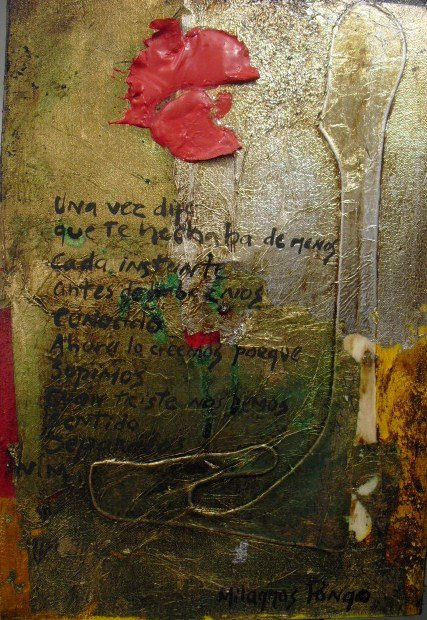 Una vez dije
que te hechaba de menos
cada instante
antes de habernos
conocido
Ahora lo creemos porque
supimos
cuan triste nos hemos
sentido
separados
Milagros Pongo